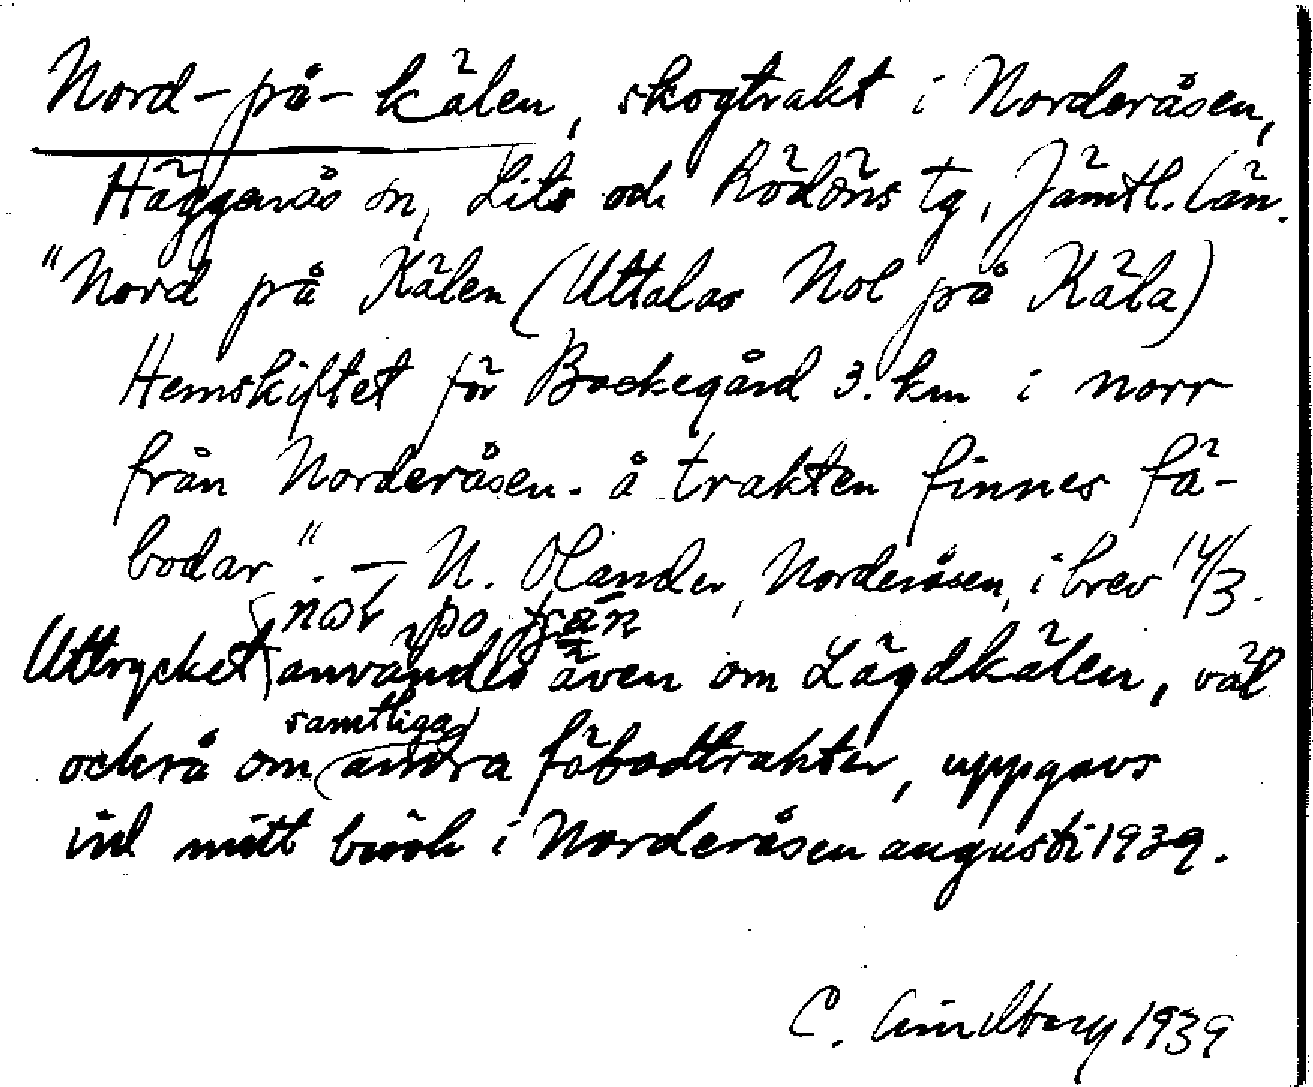 Nord-på-kälen, skogtrakt i Norderåsen,
Häggenås sn, Lits och Rödöns tg, Jämtl. län.
"Nord på Kälen (Uttalas Nol på Käla)
Hemskiftet för Backegård 3. km i norr
från Norderåsen. å trakten finnes fä-
bodar". — N. Olander, Norderåsen, i brev 14/3.
nol på
Uttrycket användes även om Lägdkälen, väl
samtliga
också om andra fäbodtrakter, uppgavs
vid mitt besök i Norderåsen augusti 1939.
C. Lindberg 1939